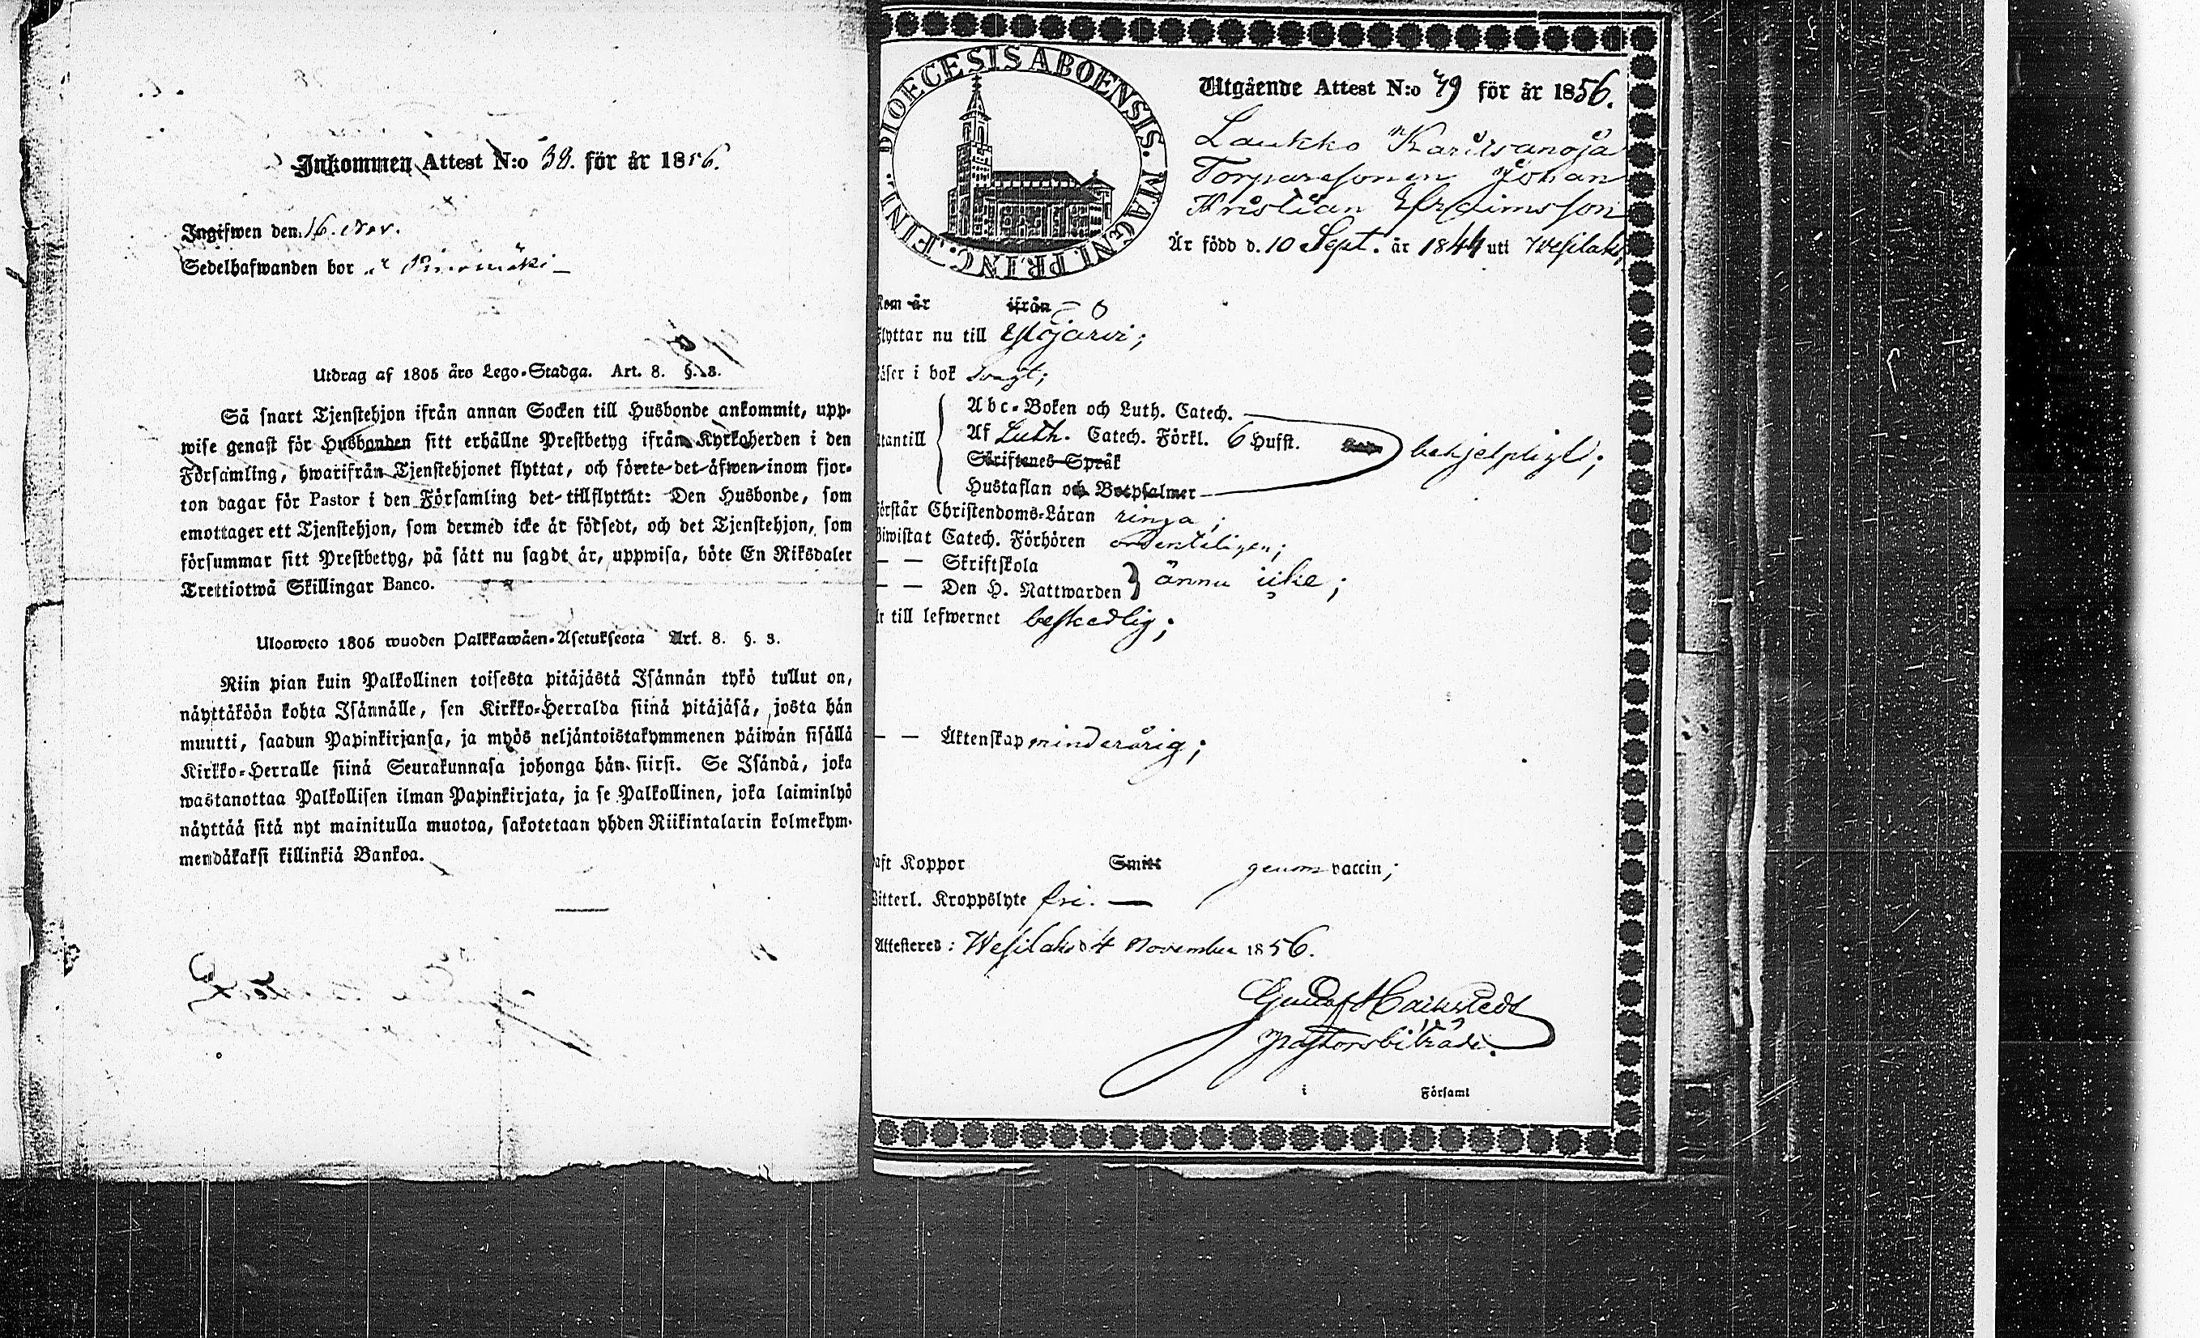 Inkommen Attest N:o 38. för år 1856.
Ingifwen den 16. Nov.
Sedelhafwanden bor
Utdrag af 1805 års Lego-Stadga. Art. 8. §. 3.
Så snart Tjenstehjon ifrån annan Socken till Husbonde ankommit, upp-
wise genast för Husbonden sitt erhållne Prestbetyg ifrån Kyrkoherden i den
Församling, hwarifrån Tjenstehjonet flyttat, och förete det åfwen inom fjor-
ton dagar för Pastor i den Församling det tillflyttat: Den Husbonde, som
emottager ett Tjenstehjon, som dermed icke är försedt, och det Tjenstehjon, som
försummar sitt Prestbetyg, på sått nu sagdt är, uppwisa, böte En Riksdaler
Trettiotwå Skillingar Banco.
Ulosweto 1805 wuoden Palkkawäen-Asetuksesta Art. 8. §. 3.
Niin pian kuin Palkollinen toisesta pitäjästä Isännän tykö tullut on,
näyttäköön kohta Isännälle, sen Kirkko-Herralda siinä pitäjäsä, josta hän
muutti, saadun Papinkirjansa, ja myös neljäntoistakymmenen päiwän sisällä
Kirkko-Herralle siinä Seurakunnasa johonga hän siirsi. Se Isändä, joka
wastanottaa Palkollisen ilman Papinkirjata, ja se Palkollinen, joka laiminlyö
näyttää sitä nyt mainitulla muotoa, sakotetaan yhden Riikintalarin kolmekym-
mendäkaksi killinkiä Bankoa.
DIOECESIS ABOENSIS. MAGNI. PRINC. FINL.
Utgående Attest N:o 79 för år 1856.
Laukko Karilsanoja
Torparesonen Johan
Kristian Efraimsson
Är född d. 10 Sept. år 1844 uti Wesilaks,
Kom år ifrån – 0
Flyttar nu till Ylöjärvi;
Läser i bok svagt;
Utantill
Abc-Boken och Luth. Catech.
Af Luth. Catech. Förkl. 6 Hufst.
Skriftenes Språk
Hustaflan och Botpsalmer
behjelpligt;
Förstår Christendoms-Läran ringa;
Biwistat Catech. Förhören ordenteligen;
— — Skriftskola
— — Den H. Nattwarden
ännu icke;
Är till lefwernet beskedlig;
— — Äktenskap minderårig;
Haft Koppor Smitt genom vaccin;
Witterl. Kroppslyte fri. —
Attesteres: Wesilaks d 4 November 1856.
Gustaf
pastorsbiträde.
i Församl